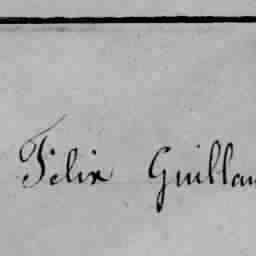 Félix Guillau